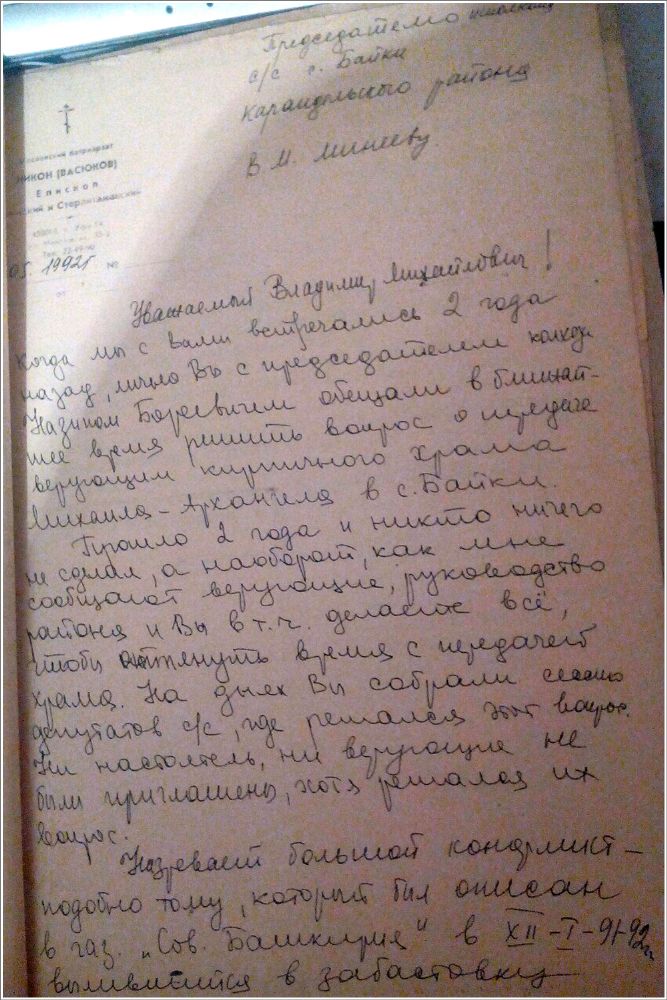 Председателю исполкома
с/с с. Байки
Караидельского района
В. М. Минееву.
Московский Патриархат
НИКОН (ВАСЮКОВ)
Епископ
ский и Стерлитамакский
05. 1992г №
от
Уважаемый Владимир Михайлович!
Когда мы с Вами встречались 2 года
назад, лично Вы с председателем колхоз.
Назипом Боревичем обещали в ближай-
шее время решить вопрос о передаче
верующим кирпичного храма
Михаила-Архангела в с. Байки.
Прошло 2 года и никто ничего
не сделал, а наоборот, как мне
сообщают верующие, руководство
района и Вы в т.ч. делаете всё,
чтобы оттянуть время с передачей
храма. На днях Вы собрали сессию
депутатов с/с, где решался этот вопрос.
Ни настоятель, ни верующие не
были приглашены, хотя решался их
вопрос.
Назревает большой конфликт –
подобно тому, который был описан
в газ. „Сов. Башкирия" в XII-I-91-92гг
вылившийся в забастовку